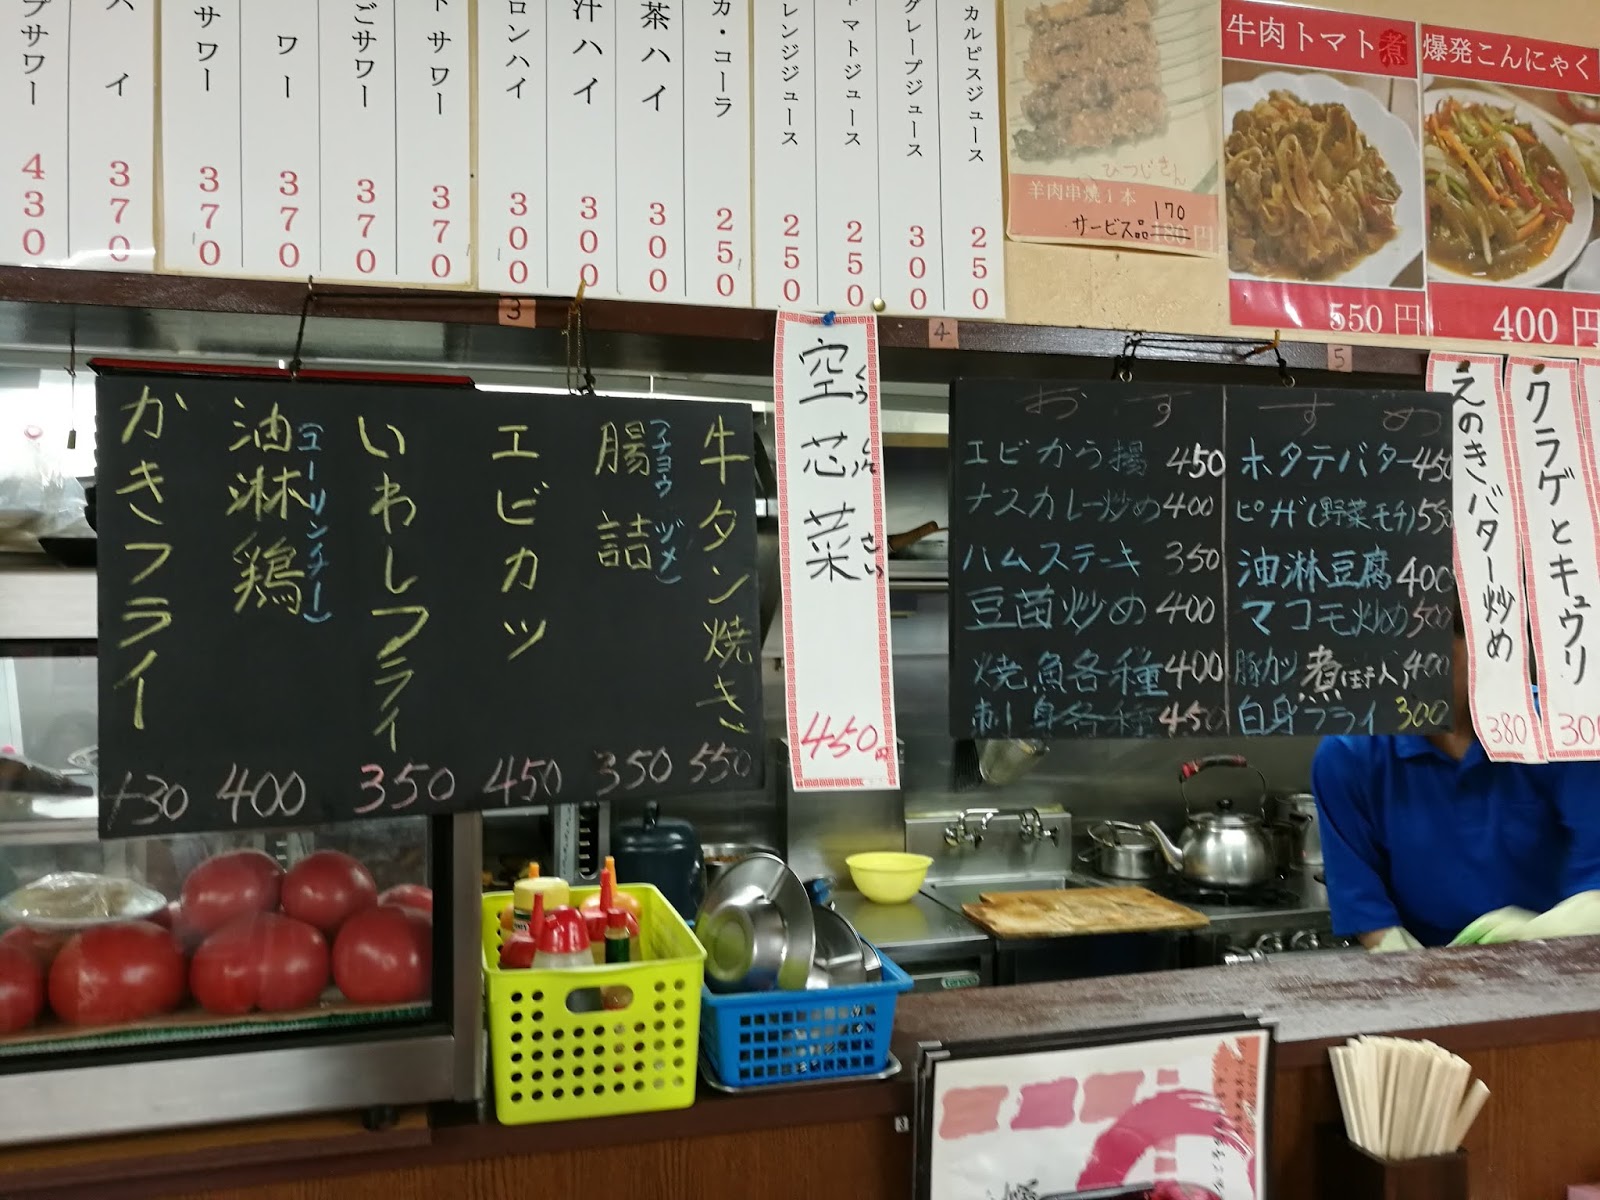 プサワー 430
ハイ 370
サワー 370
ワー 370
ごサワー 370
トサワー 370
ロンハイ 300
汁ハイ 300
茶ハイ 300
カ・コーラ 250
レンジジュース 250
トマトジュース 250
グレープジュース 300
カルピスジュース 250
ひつじさん
羊肉串焼1本
170
サービス品180円
牛肉トマト煮
550円
爆発こんにゃく
400円
3
4
5
牛タン焼き 550
腸詰(チョウヅメ) 350
エビカツ 450
いわしフライ 350
油淋鶏(ユーリンチー) 400
かきフライ 430
空芯菜
くうしんさい
450円
おすすめ
エビから揚 450
ナスカレー炒め 400
ハムステーキ 350
豆苗炒め 400
焼魚各種 400
刺身各種 450
ホタテバター 450
ピザ(野菜モチ) 550
油淋豆腐 400
マコモ炒め 500
豚カツ煮(玉子入) 400
白身フライ 300
えのきバター炒め 380
クラゲとキュウリ 300